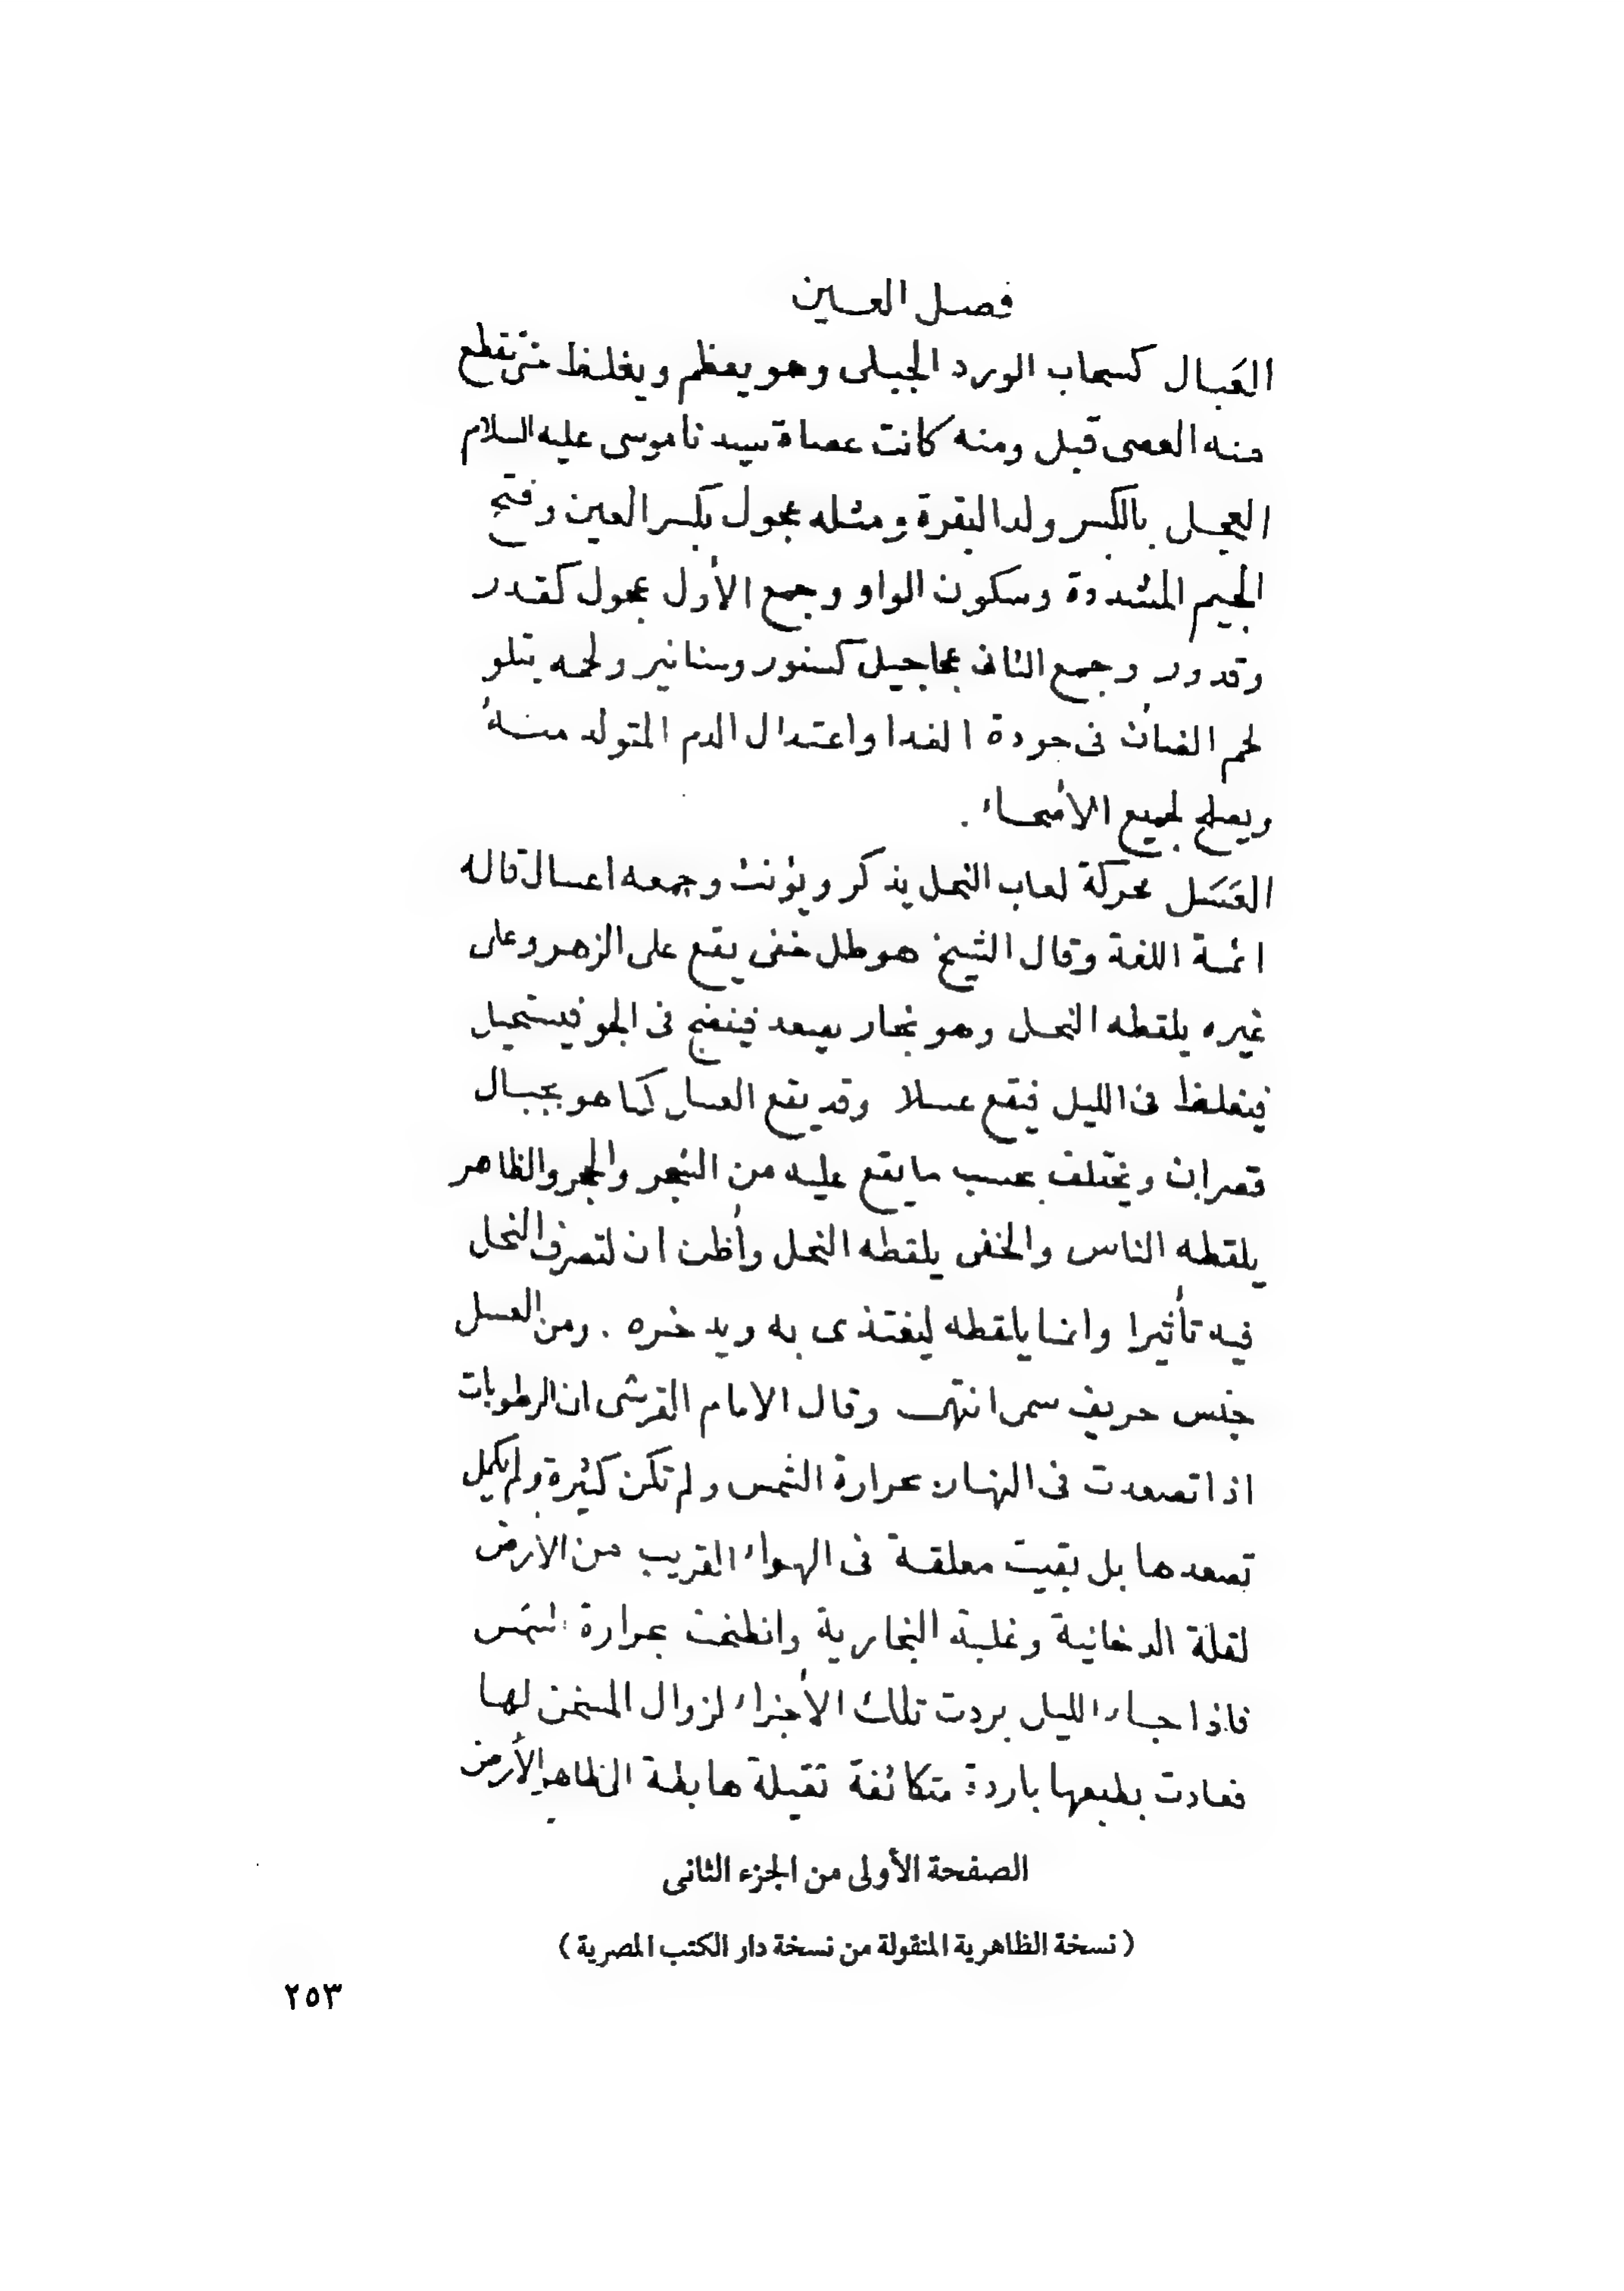 فصل العين
العَبال كسحاب الورد الجبلى وهو يعظم ويغلظ حتى تقطع
منه العصى قيل ومنه كانت عصاة سيدنا موسى عليه السلام
العجل بالكسر ولد البقرة ومثله عجول بكسر العين وفتح
الجيم المشددة وسكون الواو وجمع الأول عجول كقدر
وقدور وجمع الثانى عجاجيل كسنور وسنانير ولحمه يتلو
لحم الضأن فى جودة الغدا واعتدال الدم المتولد منه
ويصلح لجميع الأصحاء .
العَسَل محركة لعاب النحل يذكر ويؤنث وجمعه اعسال قاله
ائمة اللغة وقال الشيخ هو طل خفى يقع على الزهر وعلى
غيره يلقطه النحل وهو بخار يصعد فينضج فى الجو فيستحيل
فيغلظ فى الليل فيقع عسلا وقد يقع العسل كما هو بجبال
قصران ويختلف بحسب ما يقع عليه من الشجر والحجر والظاهر
يلقطه الناس والخفى يلقطه النحل وأظن ان لتصرف النحل
فيه تأثيرا وانما يلقطه ليغتذى به ويدخره . ومن العسل
جنس حريف سمى انتهى وقال الامام القرشى ان الرطوبات
اذا تصعدت فى النهار بحرارة الشمس ولم تكن كثيرة ولم يكمل
تصعدها بل بقيت معلقة فى الهواء القريب من الأرض
لقلة الدخانية وغلبة البخارية وانطبخت بحرارة الشمس
فاذا جاء الليل بردت تلك الأجزاء لزوال المسخن لها
فعادت بطبعها باردة متكاثفة ثقيلة هابطة الى ظاهر الأرض
الصفحة الأولى من الجزء الثانى
( نسخة الظاهرية المنقولة من نسخة دار الكتب المصرية )
٢٥٣